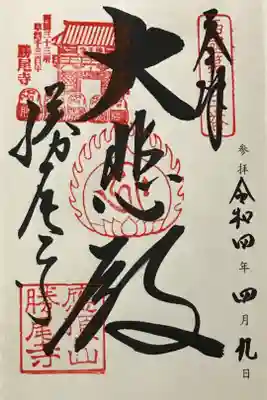 奉拝
大悲殿
勝尾寺
参拝 令和四年四月九日
勝尾寺
應頂山
勝尾寺